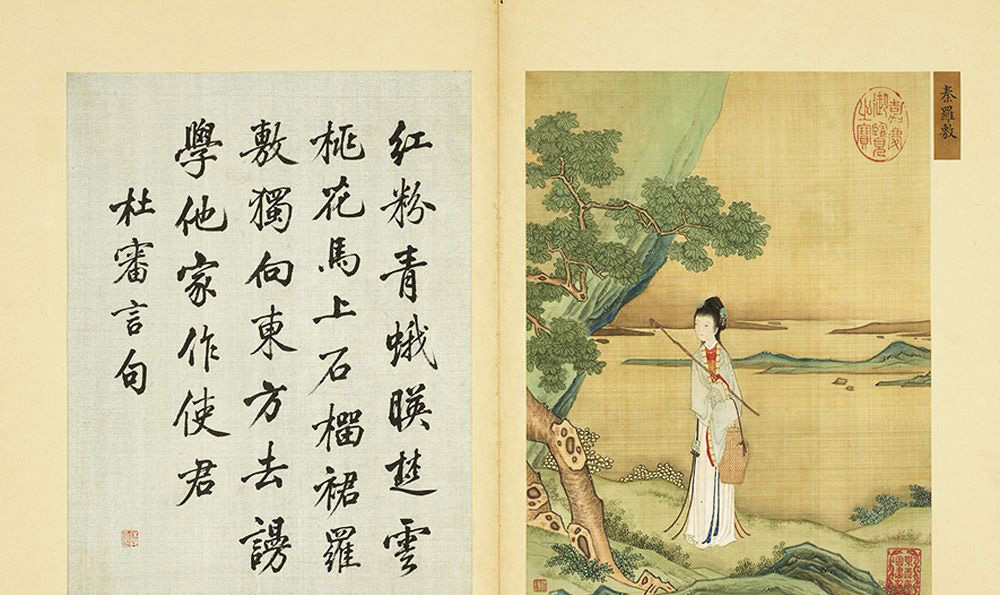 秦羅敷
嘉慶
御覽
之寶
紅粉青蛾暎楚雲
桃花馬上石榴裙羅
敷獨向東方去謾
學他家作使君
杜審言句